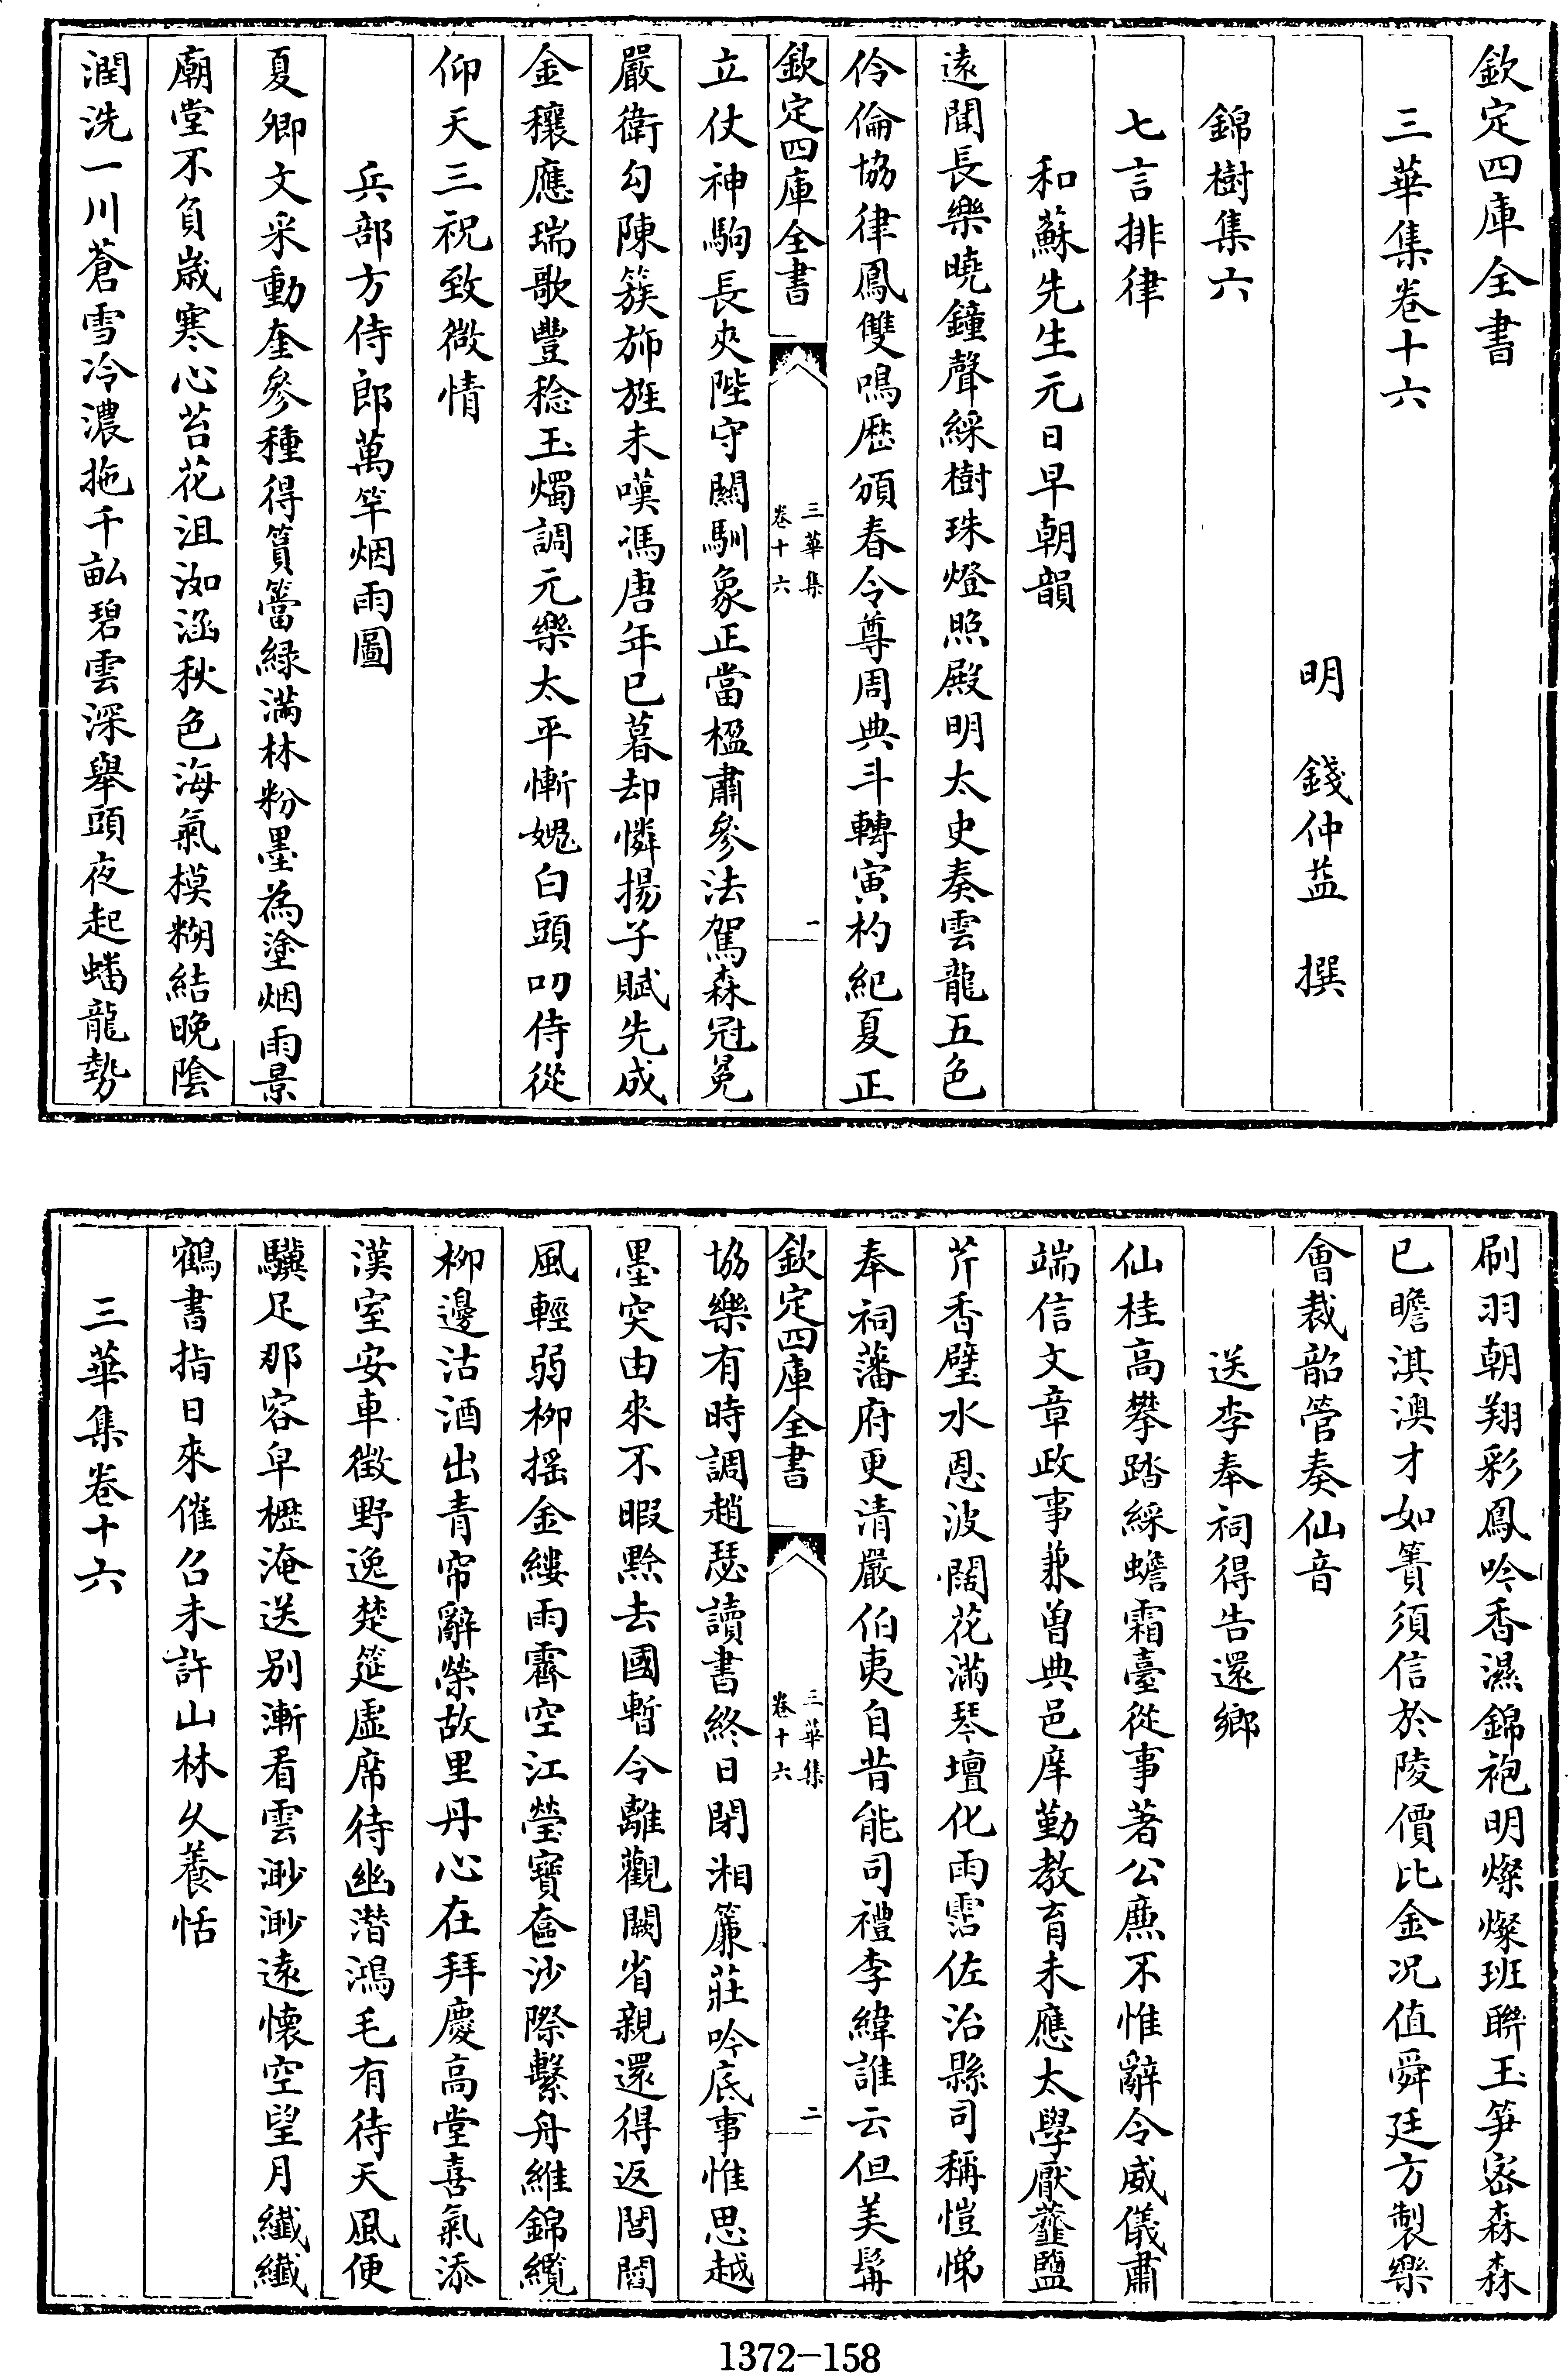 欽定四庫全書
三華集卷十六
明 錢仲益 撰
錦樹集六
七言排律
和蘇先生元日早朝韻
遠聞長樂曉鐘聲綵樹珠燈照殿明太史奏雲龍五色
伶倫協律鳳雙鳴歴頒春令尊周典斗轉寅杓紀夏正
欽定四庫全書
三華集
卷十六
一
立仗神駒長夾陛守關馴象正當楹肅參法駕森冠冕
嚴衛勾陳簇斾旌未嘆馮唐年已暮却憐揚子賦先成
金穰應瑞歌豐稔玉燭調元樂太平慚媿白頭叨侍從
仰天三祝致微情
兵部方侍郎萬竿烟雨圖
夏卿文采動奎參種得篔簹緑滿林粉墨為塗烟雨景
廟堂不負歲寒心苔花沮洳涵秋色海氣模糊結晚陰
潤洗一川蒼雪冷濃拖千畝碧雲深舉頭夜起蟠龍勢
刷羽朝翔彩鳳吟香濕錦袍明燦燦班聯玉笋宻森森
已瞻淇澳才如簀須信於陵價比金况值舜廷方製樂
會裁韶管奏仙音
送李奉祠得告還鄉
仙桂高攀踏綵蟾霜臺從事著公亷不惟辭令威儀肅
端信文章政事兼曽典邑庠勤教育未應太學厭虀鹽
芹香璧水恩波闊花滿琴壇化雨霑佐治縣司稱愷悌
奉祠藩府更清嚴伯夷自昔能司禮李緯誰云但美髯
欽定四庫全書
三華集
卷十六
二
協樂有時調趙瑟讀書終日閉湘簾莊吟底事惟思越
墨突由來不暇黔去國暫令離觀闕省親還得返閭閻
風輕弱柳揺金縷雨霽空江瑩寶奩沙際繫舟維錦纜
柳邊沽酒出青帘辭榮故里丹心在拜慶高堂喜氣添
漢室安車徴野逸楚筵虚席待幽潛鴻毛有待天風便
驥足那容皁櫪淹送别漸看雲渺渺遠懐空望月纖纖
鶴書指日來催召未許山林久養恬
三華集卷十六
1372-158